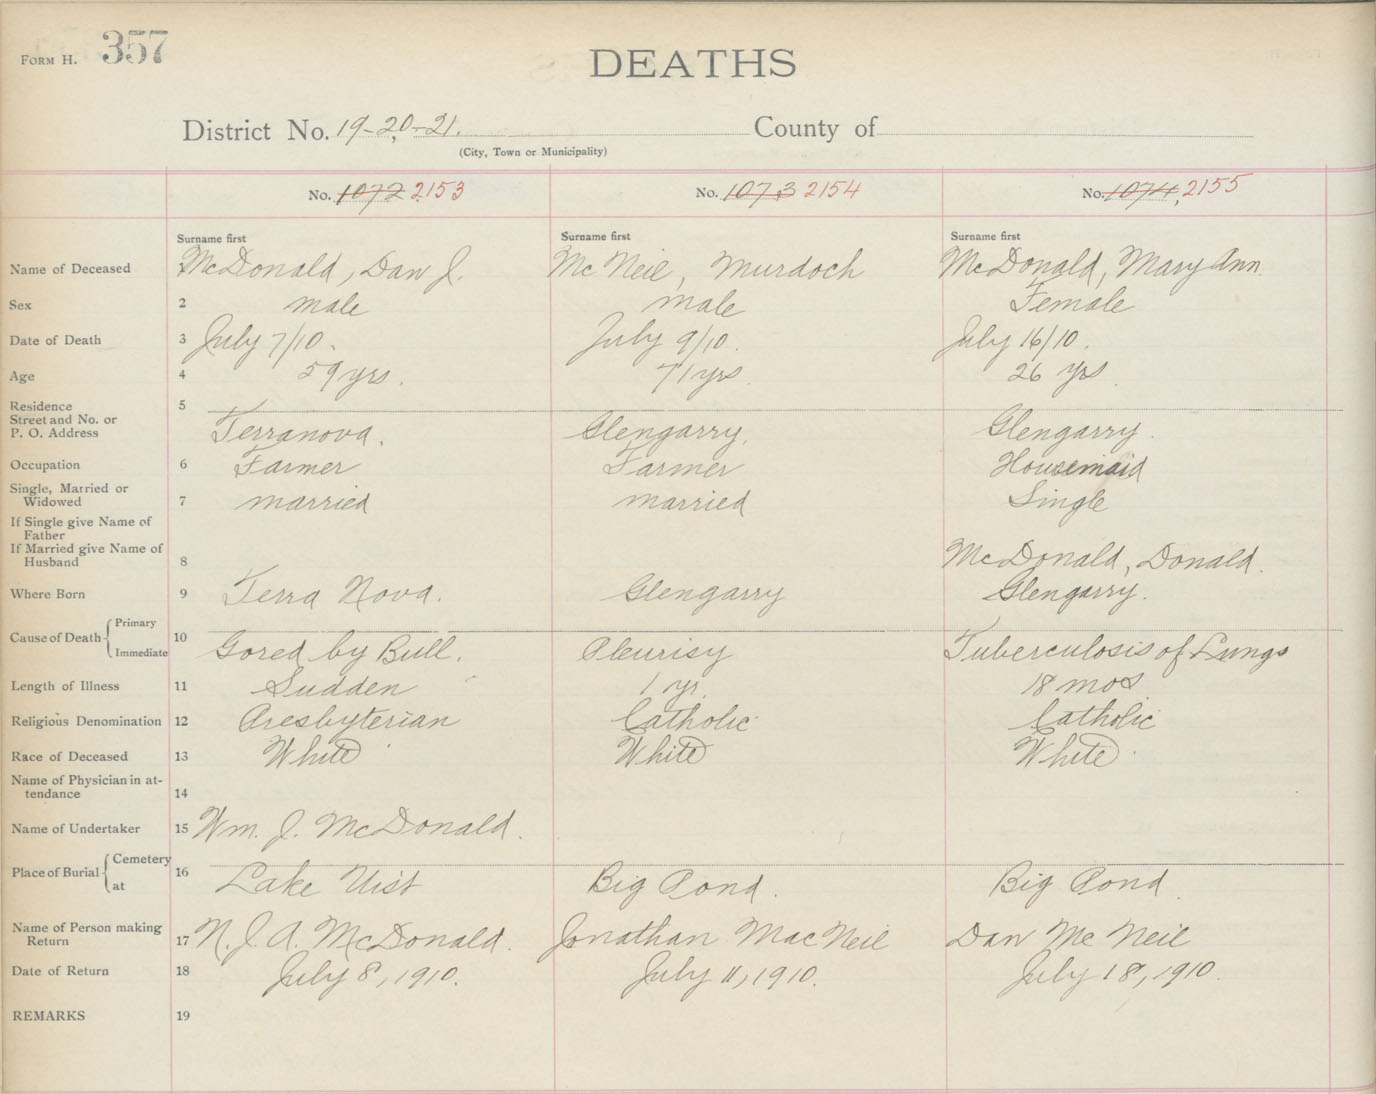 FORM H. 357
DEATHS
District No. 19-20-21. County of
(City, Town or Municipality)
No. 1072 2153 No. 1073 2154 No. 1074 2155
Surname first Surname first Surname first
Name of Deceased McDonald, Dan J. McNeil, Murdoch McDonald, Mary Ann.
Sex 2 male male Female
Date of Death 3 July 7/10. July 9/10. July 16/10.
Age 4 59 yrs. 71 yrs. 26 yrs.
Residence 5
Street and No. or
P. O. Address Terranova. Glengarry. Glengarry.
Occupation 6 Farmer Farmer Housemaid
Single, Married or
Widowed 7 married married Single
If Single give Name of
Father
If Married give Name of
Husband 8 McDonald, Donald.
Where Born 9 Terra Nova. Glengarry Glengarry.
Cause of Death Primary 10
Immediate Gored by Bull. Pleurisy Tuberculosis of Lungs
Length of Illness 11 Sudden 1 yr. 18 mos
Religious Denomination 12 Presbyterian Catholic Catholic
Race of Deceased 13 White White White
Name of Physician in at-
tendance 14
Name of Undertaker 15 Wm. J. McDonald.
Place of Burial Cemetery 16
at Lake Uist Big Pond. Big Pond.
Name of Person making
Return 17 N. J. A. McDonald. Jonathan MacNeil Dan McNeil
Date of Return 18 July 8, 1910. July 11, 1910. July 18, 1910.
REMARKS 19